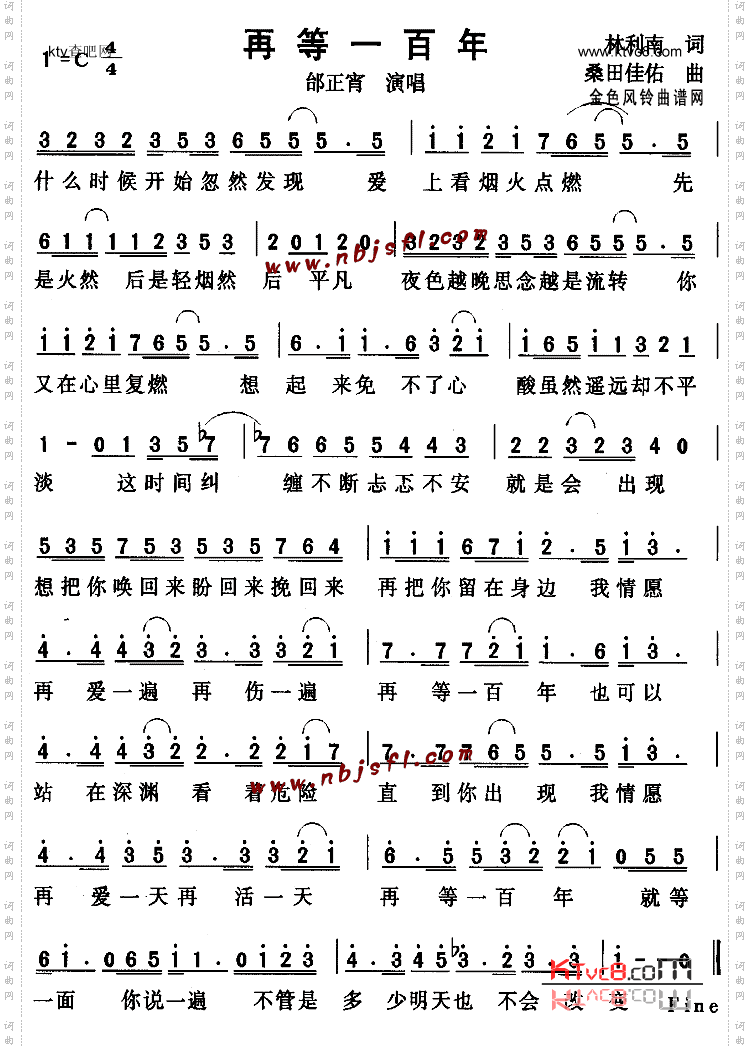 再等一百年
ktv杏吧网
1=C 4/4
邰正宵 演唱
林利南 词
www.ktvc8.com
桑田佳佑 曲
金色风铃曲谱网
3 2 3 2 3 5 3 6 5 5 5 . 5 | 1 1 2 1 7 6 5 5 . 5
什么时候开始忽然发现 爱 上看烟火点燃 先
6 1 1 1 1 1 2 3 5 3 | 2 0 1 2 0 | 3 2 3 2 3 5 3 6 5 5 5 . 5
是火然 后是轻烟然 后 平凡 夜色越晚思念越是流转 你
www.nbjsfl.com
1 1 2 1 7 6 5 5 . 5 | 6 . 1 1 . 6 3 2 1 | 1 6 5 1 1 3 2 1
又在心里复燃 想 起 来免 不了心 酸虽然遥远却不平
1 - 0 1 3 5 ♭7 | ♭7 6 6 5 5 4 4 3 | 2 2 3 2 3 4 0
淡 这时间纠 缠不断忐忑不安 就是会 出现
5 3 5 7 5 3 5 3 5 7 6 4 | 1 1 1 6 7 1 2 . 5 1 3 .
想把你唤回来盼回来挽回来 再把你留在身边 我情愿
4 . 4 4 3 2 3 . 3 3 2 1 | 7 . 7 7 2 1 1 . 6 1 3 .
再 爱一遍 再 伤一遍 再 等一百 年 也可以
4 . 4 4 3 2 2 . 2 2 1 7 | 7 . 7 7 6 5 5 . 5 1 3 .
站 在深渊 看 着危险 直 到你出 现 我情愿
www.nbjsfl.com
4 . 4 3 5 3 . 3 3 2 1 | 6 . 5 5 3 2 2 1 0 5 5
再 爱一天再 活一天 再 等一百 年 就等
6 1 . 0 6 5 1 1 . 0 1 2 3 | 4 . 3 4 5 ♭3 . 2 3 . 3 | 1 - - 0
一面 你说一遍 不管是 多 少明天也 不会 改 变 Fine
KTvc8.com